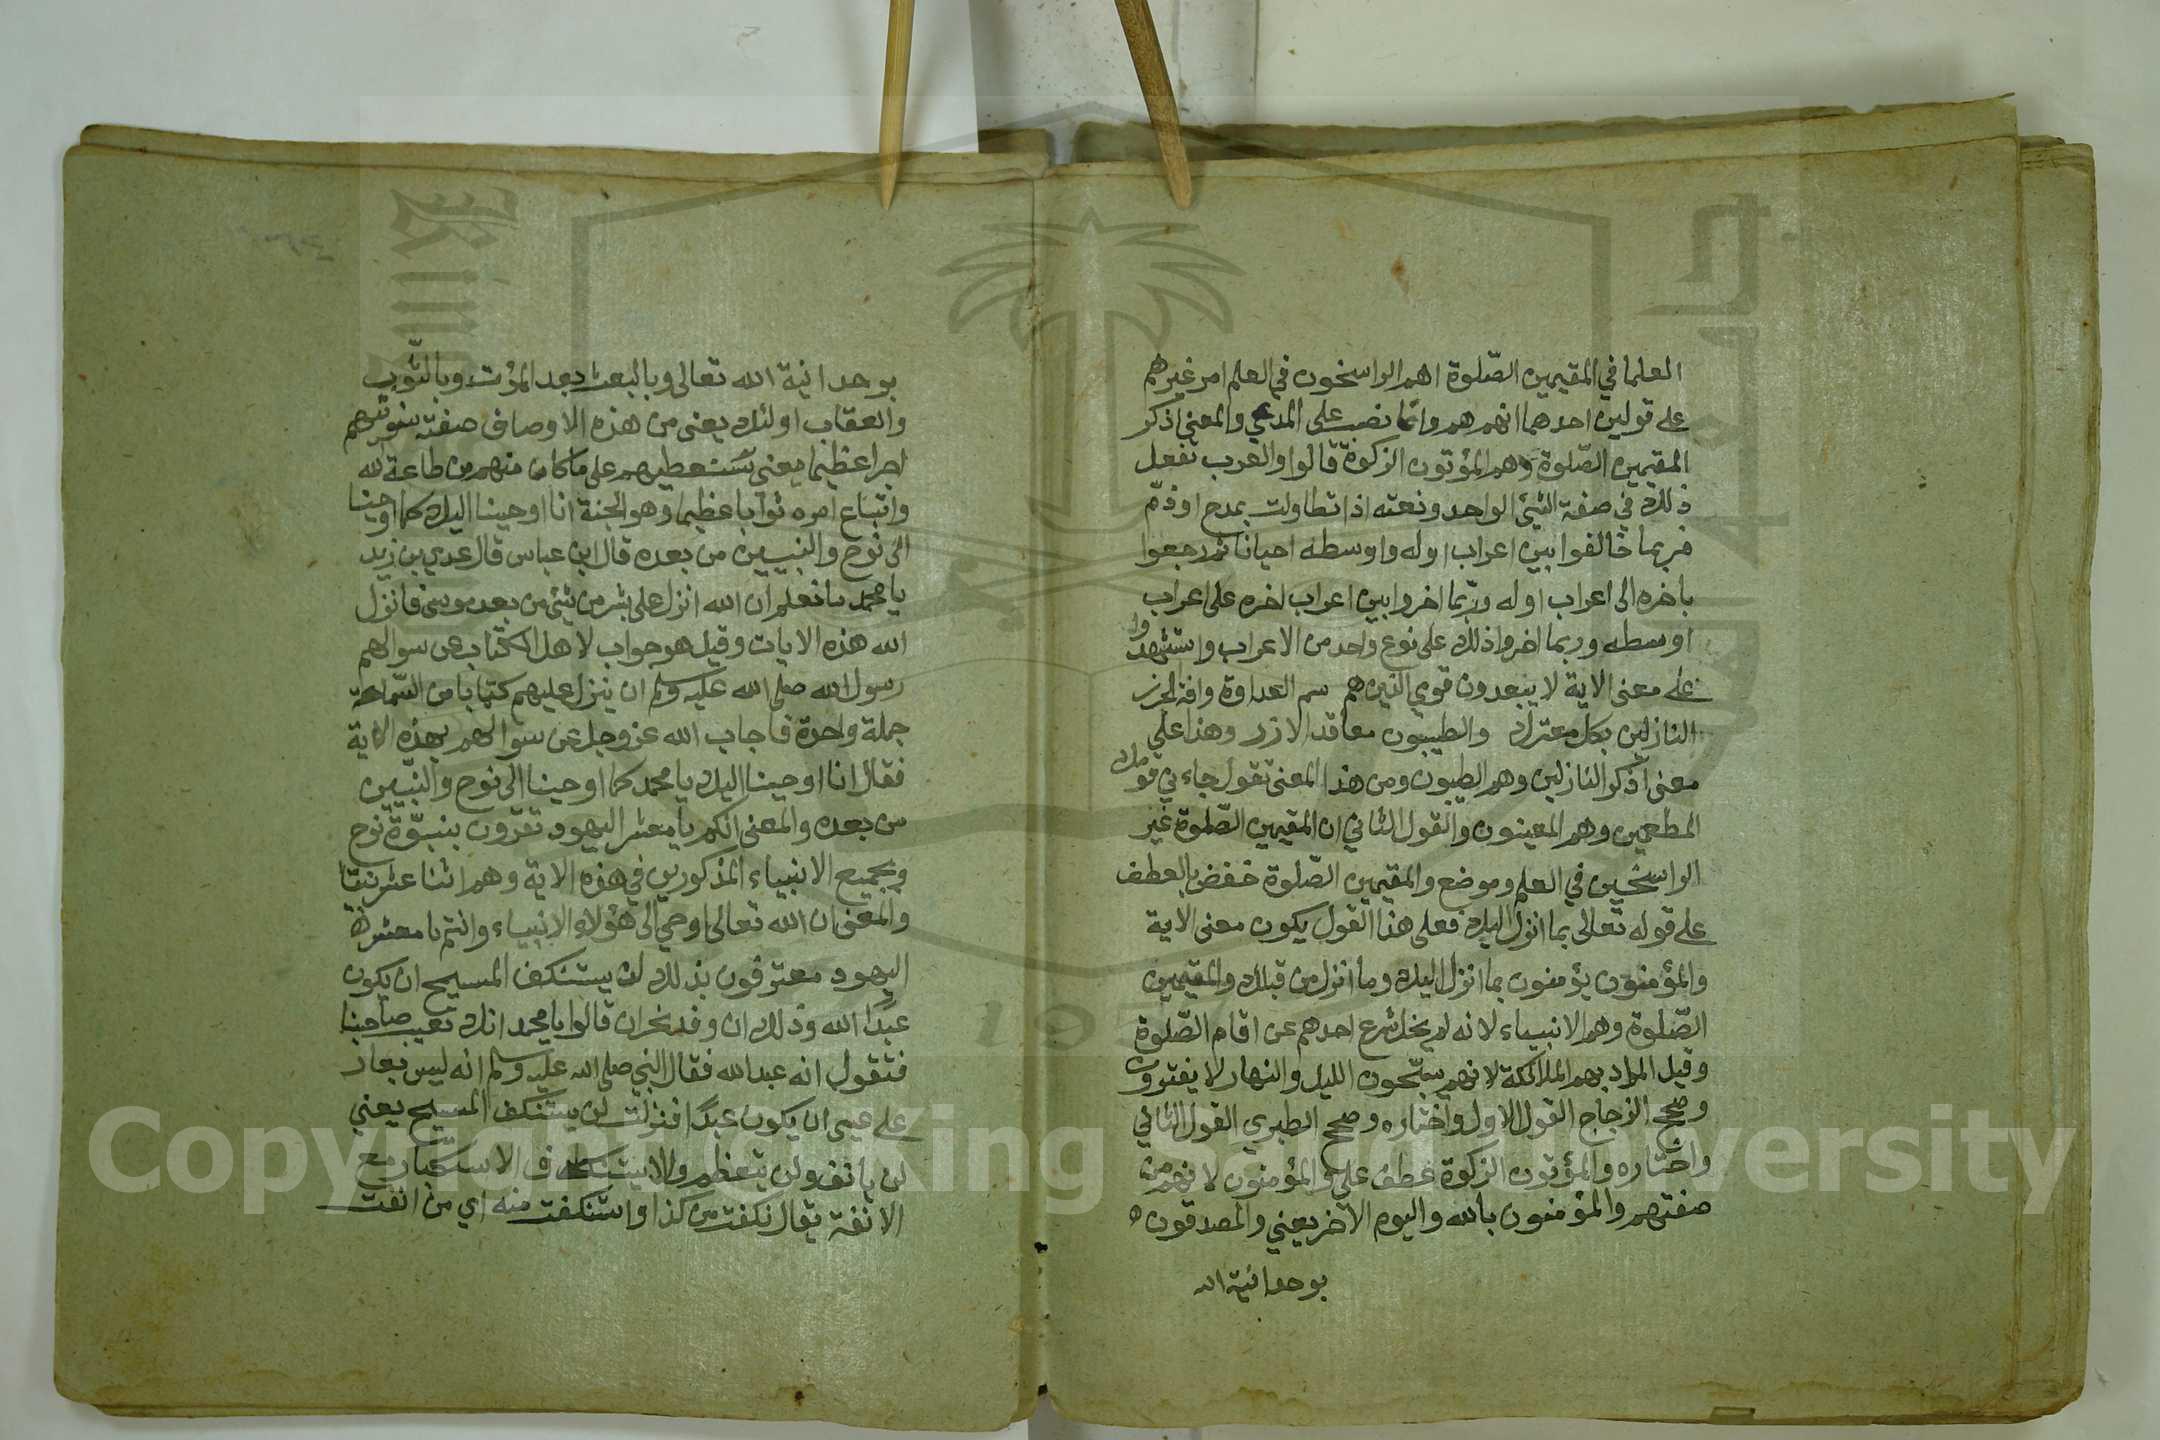 العلما في المقيمين الصّلوة اهم الراسخون في العلم ام غيرهم
على قولين احدهما انهم هم وانما نصب على المدح والمعنى اذكر
المقيمين الصّلوة وهم المؤتون الزكوة قالوا والعرب تفعل
ذلك في صفة الشيئ الواحد ونعته اذا تطاولت بمدح او ذمّ
فربما خالفوا بين اعراب اوله واوسطه احيانا ثم رجعوا
باخره الى اعراب اوله وربّما اخروا بين اعراب اخره على اعراب
اوسطه وربما اخروا ذلك على نوع واحد من الاعراب واستشهدوا
على معنى الاية لا يبعدون قومي الذين هم سم العداوة وافة الجزر
النازلين بكل معترك والطيبون معاقد الازر وهذا على
معنى اذكر النازلين وهم الطيبون ومن هذا المعنى تقول جاءني قومك
المطعمين وهم المعينون والقول الثاني ان المقيمين الصّلوة غير
الراسخين في العلم وموضع والمقيمين الصّلوة خفض بالعطف
على قوله تعالى بما انزل اليك فعلى هذا القول يكون معنى الاية
والمؤمنون يؤمنون بما انزل اليك وما انزل من قبلك والمقيمين
الصّلوة وهم الانبياء لانه لم يخل شرع احدهم عن اقام الصّلوة
وقيل المراد بهم الملائكة لانهم يسبّحون الليل والنهار لا يفترون
وصحح الزجاج القول الاول واختاره وصحح الطبري القول الثاني
واختاره والمؤتون الزكوة عطف على والمؤمنون لانهم من
صفتهم والمؤمنون بالله واليوم الاخر يعني والمصدقون ه
بوحدانية الله
بوحدانية الله تعالى وبالبعث بعد الموت وبالثّوب
والعقاب اولئك يعنى من هذه الاوصاف صفته سنوتيهم
اجرا عظيما يعنى سنعطيهم على ماكان منهم من طاعة لله
واتباع امره ثوابا عظيما وهو الجنة انا اوحينا اليك كما اوحينا
الى نوح والنبيين من بعده قال ابن عباس قال عدي بن زيد
يا محمد ما نعلم ان الله انزل على بشر من شئ من بعد موسى فانزل
الله هذه الايات وقيل هو جواب لاهل الكتاب عن سوالهم
رسول الله صلى الله عليه وسلم ان ينزل عليهم كتابا من السّماء
جملة واحدة فاجاب الله عز وجل عن سوالهم بهذه الاية
فقال انا اوحينا اليك يا محمد كما اوحينا الى نوح والنّبيين
من بعده والمعنى انكم يا معشر اليهود تقرّون بنبوّة نوح
وبجميع الانبياء المذكورين في هذه الاية وهم اثنا عشر نبيّا
والمعنى ان الله تعالى اوحي الى هؤلاء الانبياء وانتم يا معشر
اليهود معترفون بذلك لن يستنكف المسيح ان يكون
عبدًا الله وذلك ان وفد نجران قالوا يا محمد انك تعيب صاحبنا
فتقول انه عبد الله فقال النبي صلى الله عليه وسلم انه ليس بعار
على عيسى ان يكون عبدًا فنزلت لن يستنكف المسيح يعني
لن يانف ولن يتعظم والاستنكاف الاستكبار مع
الانفة يقال نكفت من كذا واستنكفت منه اي من انفت
Copyright © King Saud University